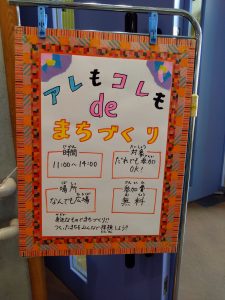 アレもコレも
de
まちづくり
時間
11:00〜14:00
対象
だれでも参加
OK!
場所
なんでも広場
参加費
無料
身近なものでまちづくり!!
つくったまちをみんなで探検しよう!